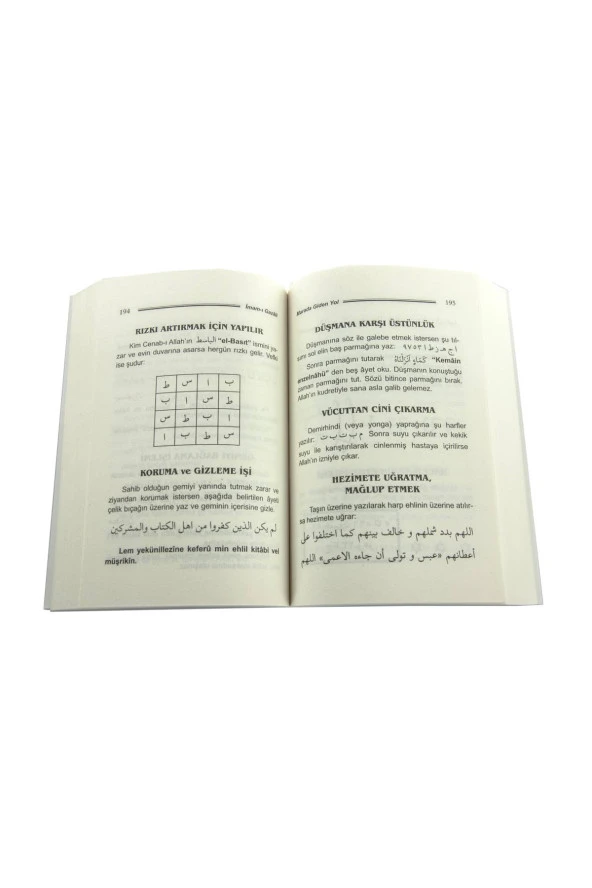 194 İmam-ı Gazâli
RIZKI ARTIRMAK İÇİN YAPILIR
Kim Cenab-ı Allah'ın الباسط "el-Basıt" ismini ya-
zar ve evin duvarına asarsa hergün rızkı gelir. Vefki
ise şudur:
ب ا س ط
ط س ا ب
ا ب ط س
س ط ب ا
KORUMA ve GİZLEME İŞİ
Sahib olduğun gemiyi yanında tutmak zarar ve
ziyandan korumak istersen aşağıda belirtilen âyeti
çelik bıçağın üzerine yaz ve geminin içerisine gizle.
لم يكن الذين كفروا من اهل الكتاب والمشركين
Lem yekünillezine keferû min ehlil kitâbi vel
müşrikin.
Murada Giden Yol 195
DÜŞMANA KARŞI ÜSTÜNLÜK
Düşmanına söz ile galebe etmek istersen şu tıl-
sımı sol elin baş parmağına yaz:
Sonra parmağını tutarak "Kemâin
enzelnâhü" den beş âyet oku. Düşmanın konuştuğu
zaman parmağını tut. Sözü bitince parmağını bırak.
Allah'ın kudretiyle sana asla galib gelemez.
VÜCUTTAN CİNİ ÇIKARMA
Demirhindi (veya yonga) yaprağına şu harfler
yazılır: Sonra suyu çıkarılır ve kekik
suyu ile karıştırılarak cinlenmiş hastaya içirilirse
Allah'ın izniyle çıkar.
HEZİMETE UĞRATMA,
MAĞLUP ETMEK
Taşın üzerine yazılarak harp ehlinin üzerine atılır-
sa hezimete uğrar:
اللهم بدد شملهم و خالف بينهم كما اختلفوا على
أعطانهم «عبس و تولى أن جاءه الاعمى» اللهم